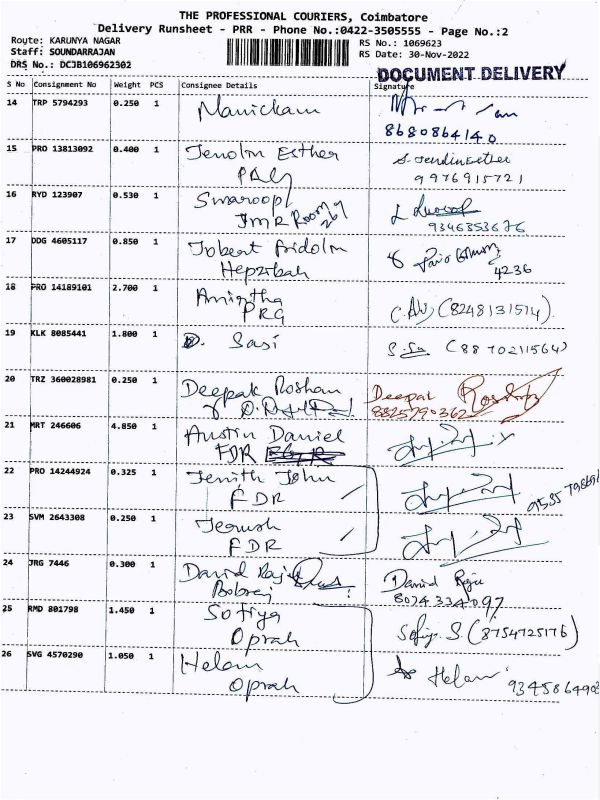 THE PROFESSIONAL COURIERS, Coimbatore
Delivery Runsheet - PRR - Phone No.:0422-3505555 - Page No.:2
Route: KARUNYA NAGAR
Staff: SOUNDARRAJAN
DRS No.: DCJB106962302
RS No.: 1069623
RS Date: 30-Nov-2022
DOCUMENT DELIVERY
S No Consignment No Weight PCS Consignee Details Signature
14 TRP 5794293 0.250 1 Manickam
8680864140
15 PRO 13813092 0.400 1 Jenolin Esther S. Jenolin Esther
PRG 9976915721
16 RYD 123907 0.530 1 Swaroop
JMR Room 267 9346353676
17 DDG 4605117 0.850 1
Hepzibah 4236
18 PRO 14189101 2.700 1
PRG (8248131514)
19 KLK 8085441 1.800 1 D. Sasi (8870211564)
20 TRZ 360028981 0.250 1 Deepak Roshan Deepak Roshan
8825790362
21 MRT 246606 4.850 1 Austin Daniel
FDR
22 PRO 14244924 0.325 1 Jenith John
FDR
23 SVM 2643308 0.250 1
FDR
24 JRG 7446 0.300 1 David Raju David Raju
8074334097
25 RMD 801798 1.450 1 Sofiya Sofiya S. (8754725176)
Oprah
26 SVG 4570290 1.050 1 Helam Helam
Oprah